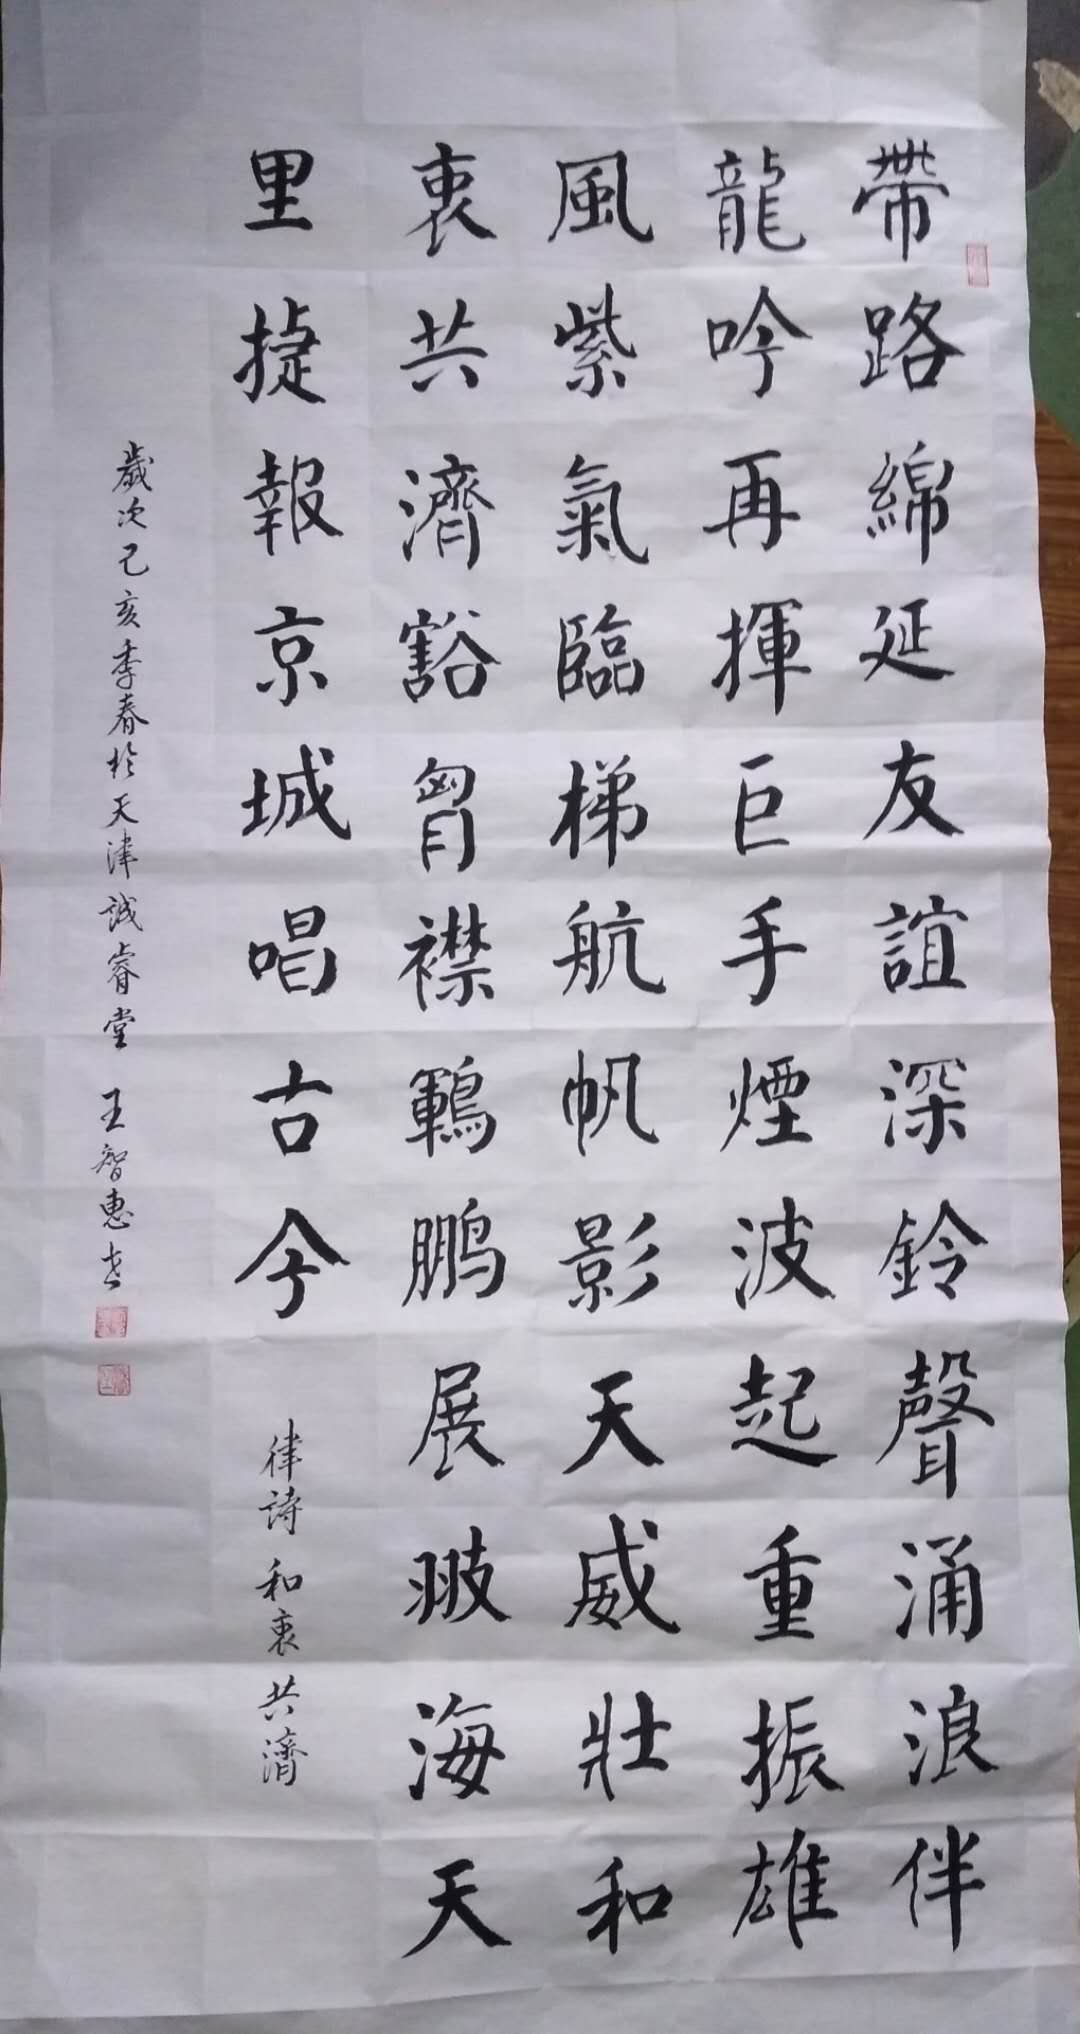 帶路綿延友誼深鈴聲涌浪伴
龍吟再揮巨手煙波起重振雄
風紫氣臨梯航帆影天威壯和
衷共濟豁胷襟鶤鹏展翅海天
里捷報京城唱古今
律詩和衷共濟
歲次己亥季春於天津誠睿堂 王智惠书